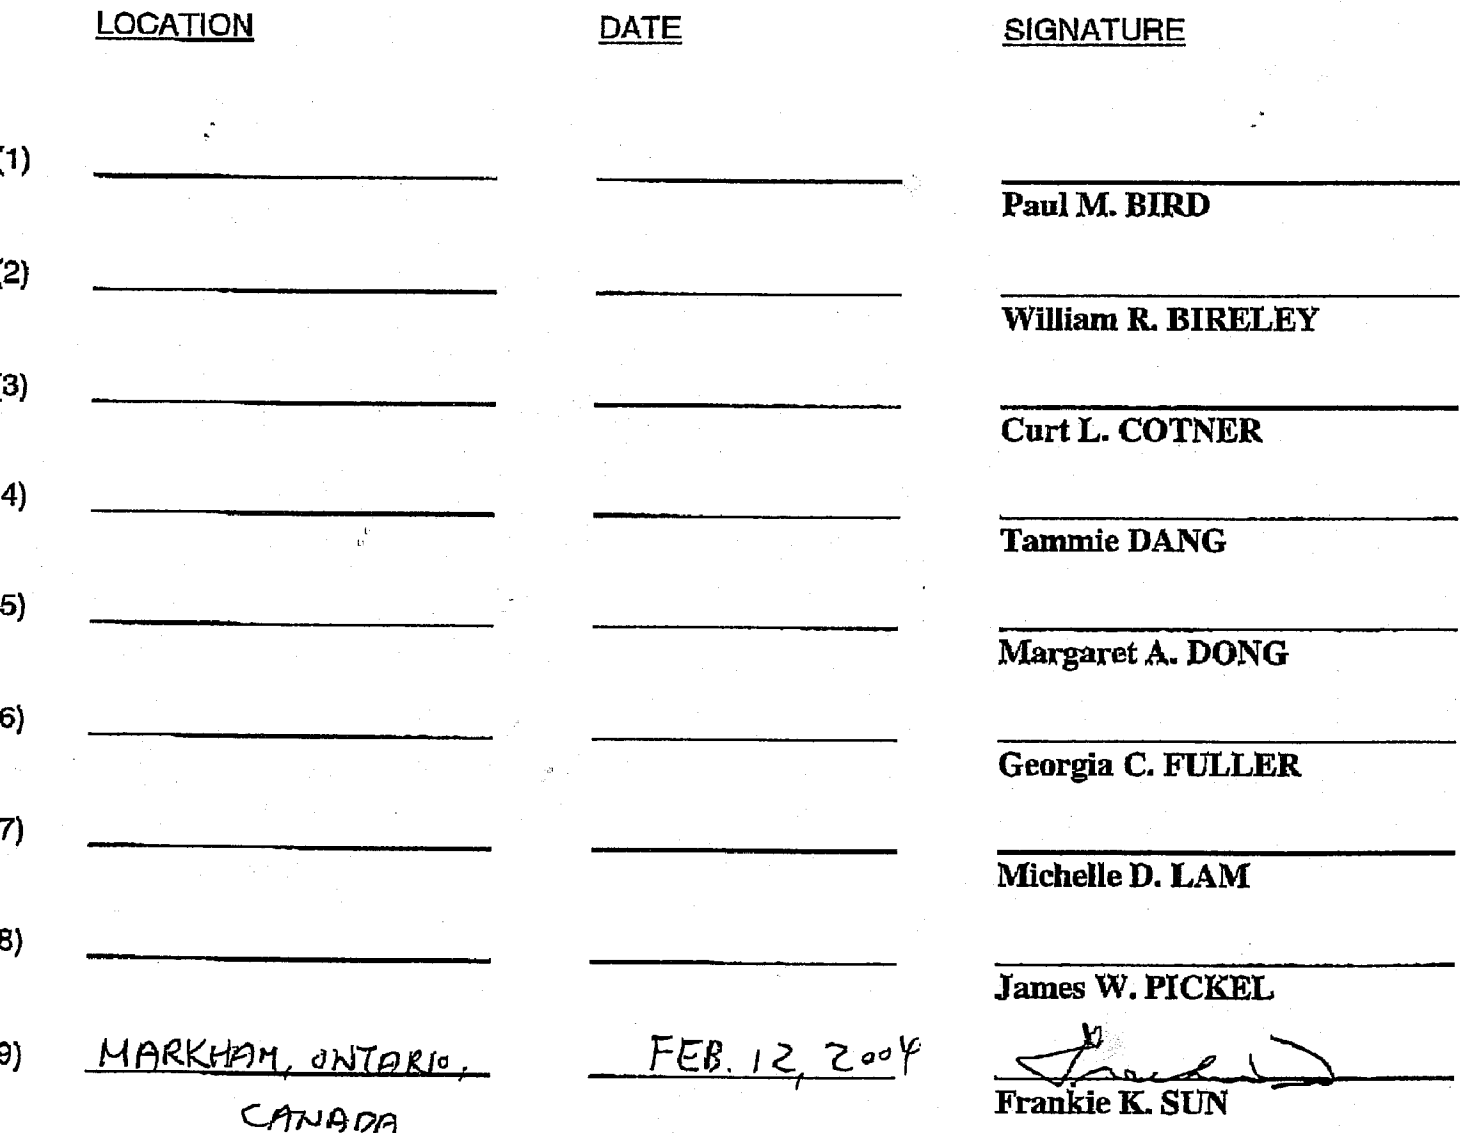 LOCATION DATE SIGNATURE
(1)
Paul M. BIRD
(2)
William R. BIRELEY
(3)
Curt L. COTNER
4)
Tammie DANG
5)
Margaret A. DONG
6)
Georgia C. FULLER
7)
Michelle D. LAM
8)
James W. PICKEL
9) MARKHAM, ONTARIO, FEB. 12, 2004
Frankie K. SUN
CANADA